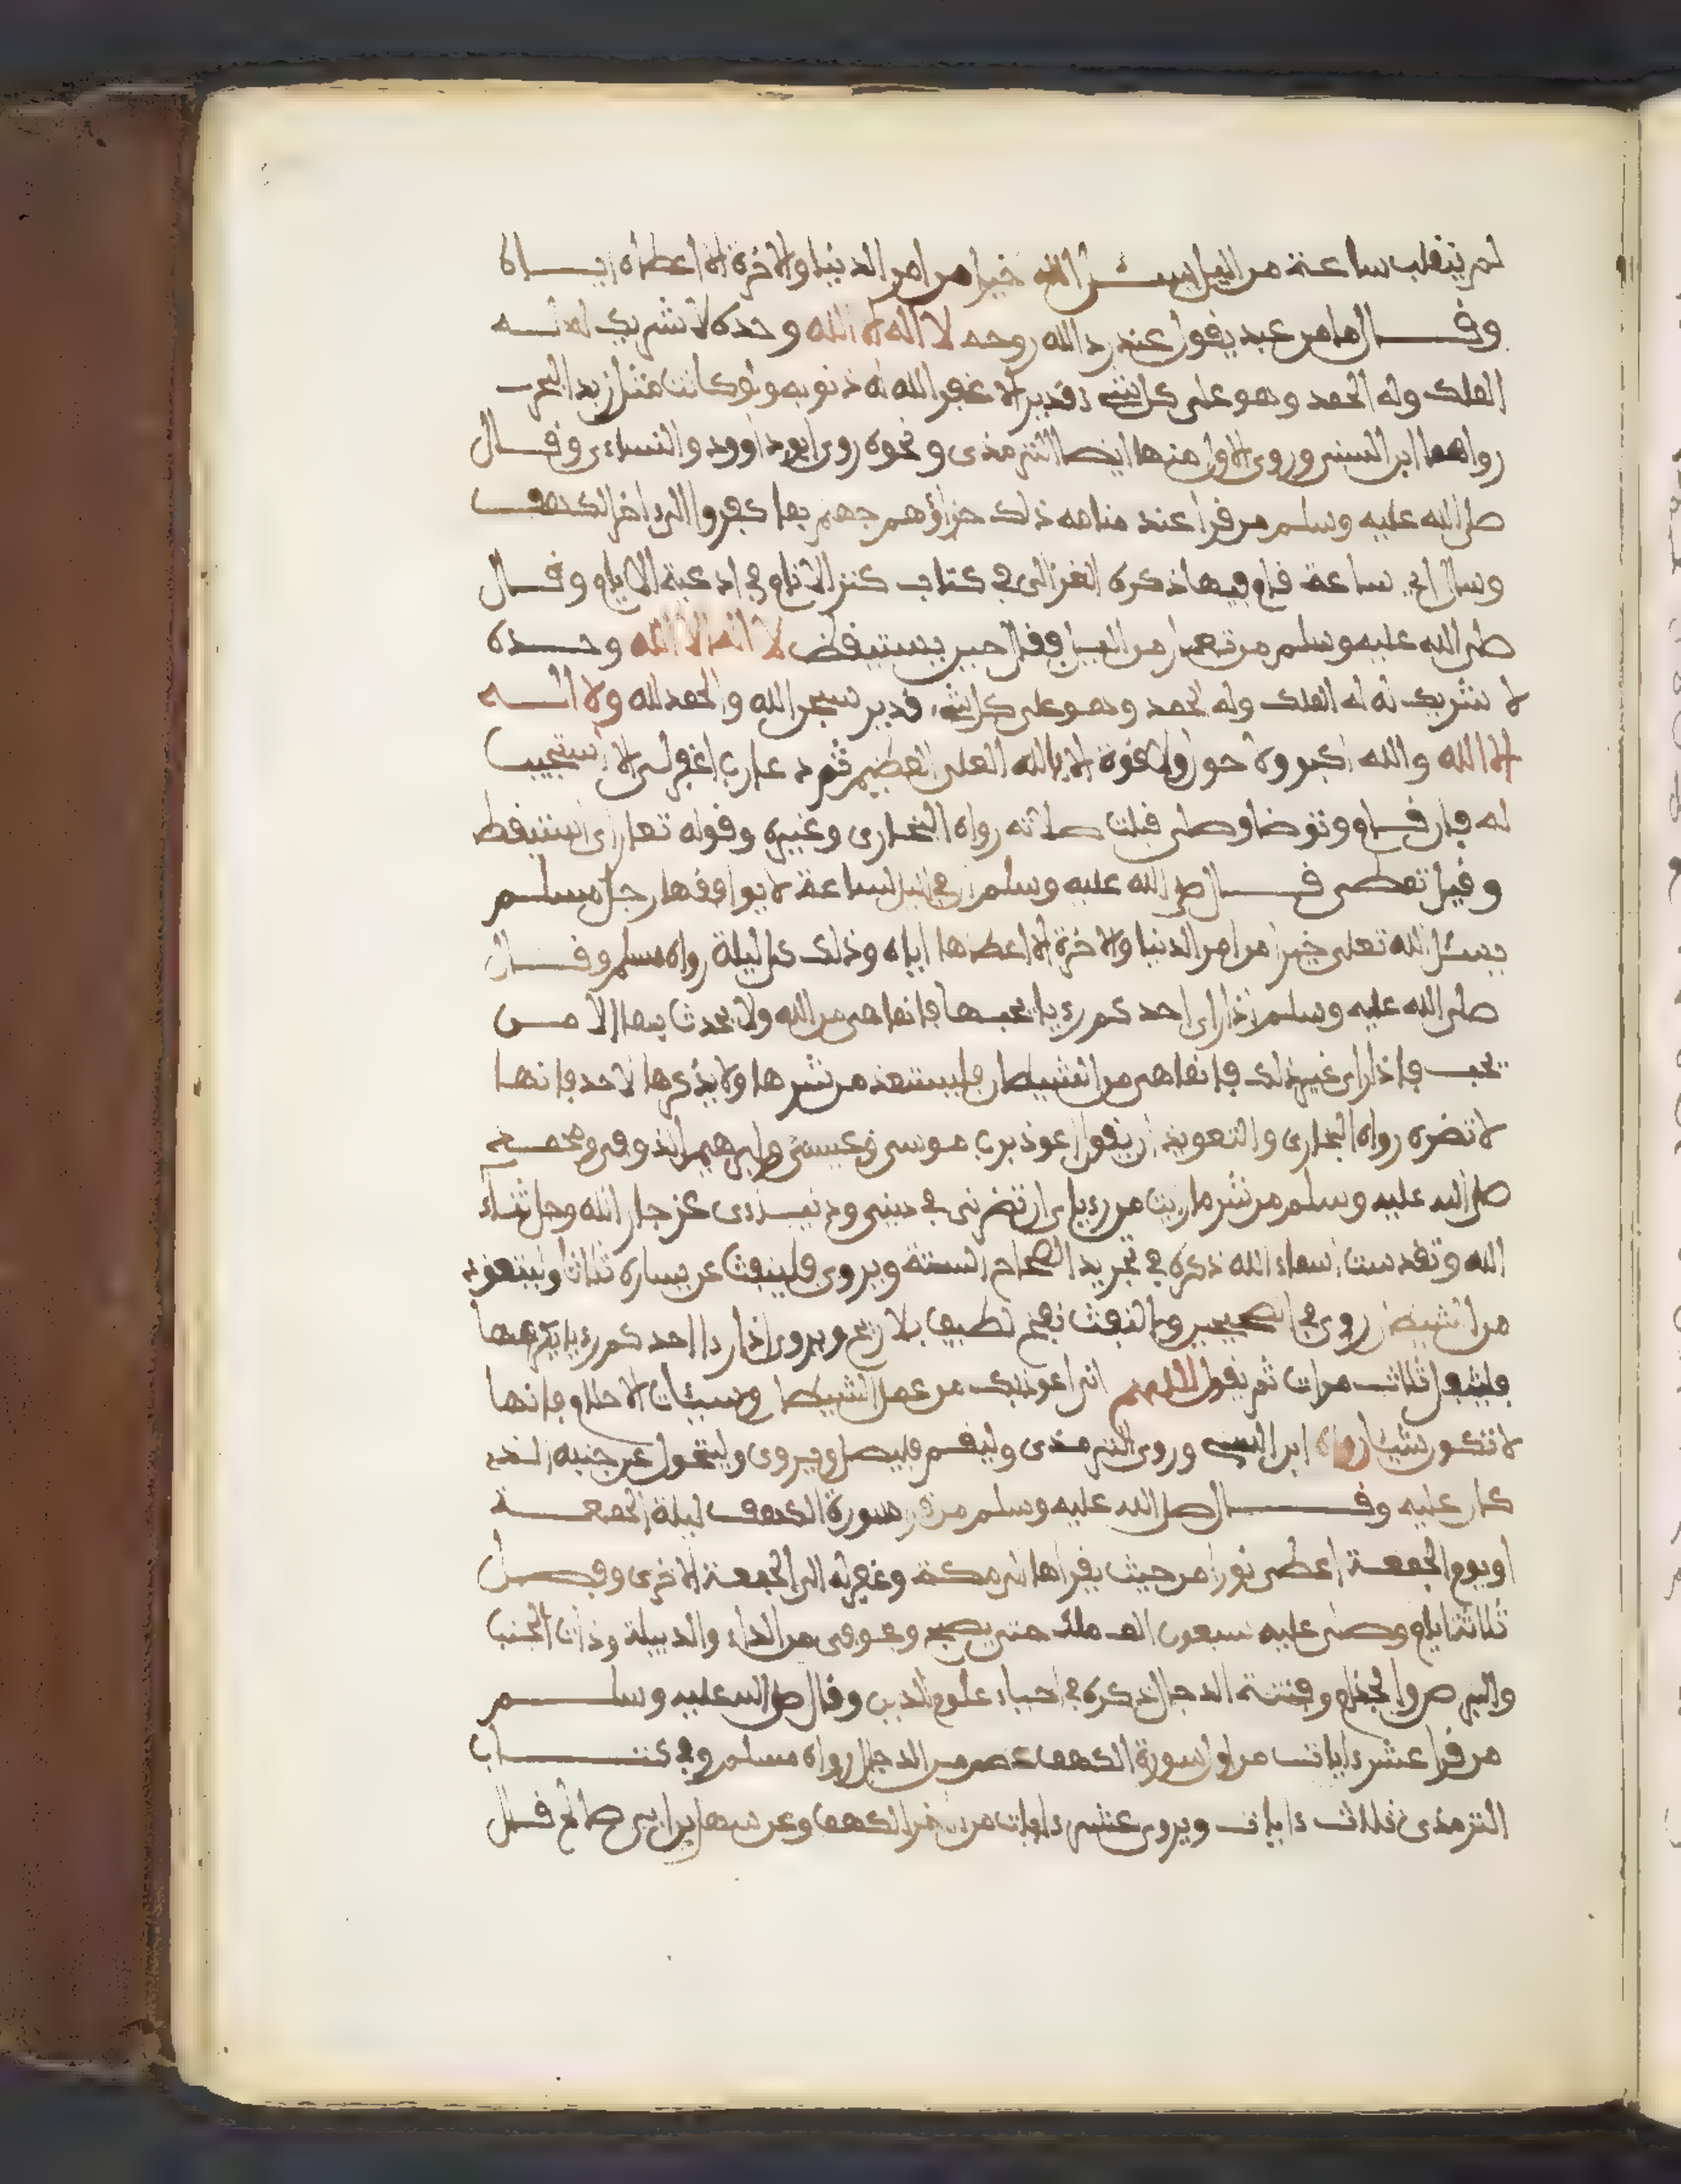 لم ينقلب ساعة من الليل يسئل الله خيرا من امر الدنيا والاخرة الا اعطاه اياه
وقال ما من عبد يقول عند رد الله روحه لا اله الا الله وحده لا شريك له له
الملك وله الحمد وهو على كل شيء قدير الا غفر الله له ذنوبه ولو كانت مثل زبد البحر
رواهما ابن السني وروى الاول منها ايضا الترمذى ونحوه روى ابو داوود والنساءى وقال
صلى الله عليه وسلم من قرا عند منامه ذلك جزاؤهم جهنم بما كفروا الى ءاخر الكهف
وسال اي ساعة قام فيها ذكره الغزالى في كتاب كنز الانام في ادعية الايام وقال
صلى الله عليه وسلم من تعار من الليل فقال حين يستيقض لا اله الا الله وحده
لا شريك له له الملك وله الحمد وهو على كل شيء قدير سبحن الله والحمد لله ولا اله
الا الله والله اكبر ولا حول ولا قوة الا بالله العلى العظيم ثم دعا رب اغفر لى الا استجيب
له فان قام وتوضا وصلى قبلت صلاته رواه البخارى وغيره وقوله تعار اى استيقظ
وقيل تمطى قال صلى الله عليه وسلم ان في الليل لساعة لا يوافقها رجل مسلم
يسئل الله تعلى خيرا من امر الدنيا والاخرة الا اعطاها اياه وذلك كل ليلة رواه مسلم وقال
صلى الله عليه وسلم اذا راى احدكم رءيا يحبها فانما هى من الله ولا يحدث بها الا من
يحب فاذا راى غير ذلك فانما هى من الشيطان فليستعذ من شرها ولا يذكرها لاحد فانها
لا تضره رواه البخارى والتعويذ ان يقول اعوذ برب موسى وعيسى وابرهيم الذى وفى ومحمد
صلى الله عليه وسلم من شر ما رايت من رءياى ان تضرنى في دينى ودنياى عز جار الله وجل ثناء
الله وتقدست اسماء الله ذكره في تجريد الصحاح الستة ويروى فلينفث عن يساره ثلاثا وليتعوذ
من الشيطن روى في الصحيحين والنفث نفخ لطيف بلا ريح ويروى اذا راا احدكم رءيا يكرهها
فليتفل ثلاث مرات ثم يقول اللهم انى اعوذ بك من عمل الشيطان وسيئات الاحلام فانها
لا تكون شيئا رواه ابن السني وروى الترمذى وليقم فليصل ويروى وليتحول عن جنبه الذى
كان عليه وقال صلى الله عليه وسلم من قرا سورة الكهف ليلة الجمعة
او يوم الجمعة اعطى نورا من حيث يقراها الى مكة وغفر له الى الجمعة الاخرى وفضل
ثلاثة ايام وصلى عليه سبعون الف ملك حتى يصبح وعوفى من الداء والدبيلة وذات الجنب
والبرص والجذام وفتنة الدجال ذكره في احياء علوم الدين وقال صلى الله عليه وسلم
من قرا عشر ءايات من اول سورة الكهف عصم من الدجال رواه مسلم وفي كتاب
الترمذى ثلاث ءايات ويروى عشر ءايات من ءاخر الكهف وعن سهل بن ابى صالح قال